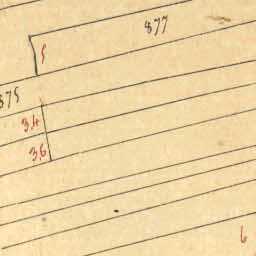 877
5
875
34
36
6